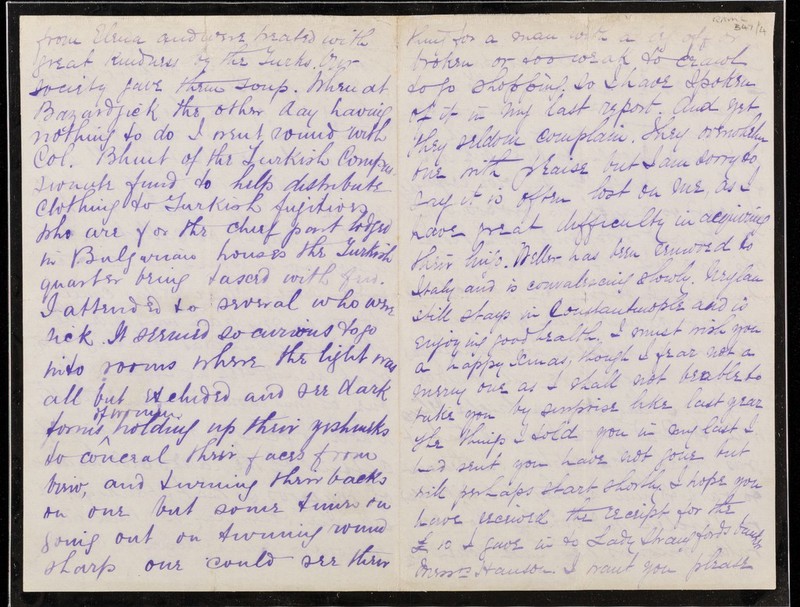 from Elena and were treated with
great kindness by the Turks. Our
society gave them soup. When at
Bazardjick the other day having
nothing to do I went round with
Col. Blunt of the Turkish Compas-
sionate fund to help distribute
clothing to Turkish fugitives
who are for the chief part lodged
in Bulgarian houses the Turkish
quarter being taxed with
I attended to several who were
sick. It seemed so curious to go
into rooms where the light was
all but excluded and see dark
of women
forms holding up their yashmaks
to conceal their faces from
view, and turning their backs
on one but some times on
going out on turning round
sharp one could see their
RAMC
801/4
hunt for a man with a leg off or
broken or too weak to crawl
to go shopping, so I have spoken
of it in my last report. And yet
they seldom complain. They overwhelm
one with praise but I am sorry to
say it is often lost on me, as I
have great difficulty in acquiring
their lingo. Weller has been removed to
Italy and is convalescing slowly.
still stays in Constantinople and is
enjoying good health. I must wish you
a happy Xmas, though I fear not a
merry one as I shall not be able to
take you by surprise like last year
The things I told you in my last I
had sent you have not gone but
will perhaps start shortly. I hope you
have received the receipt for the
£10 I gave in to Lady Strangford's bankers
Messrs Hanson. I want you please